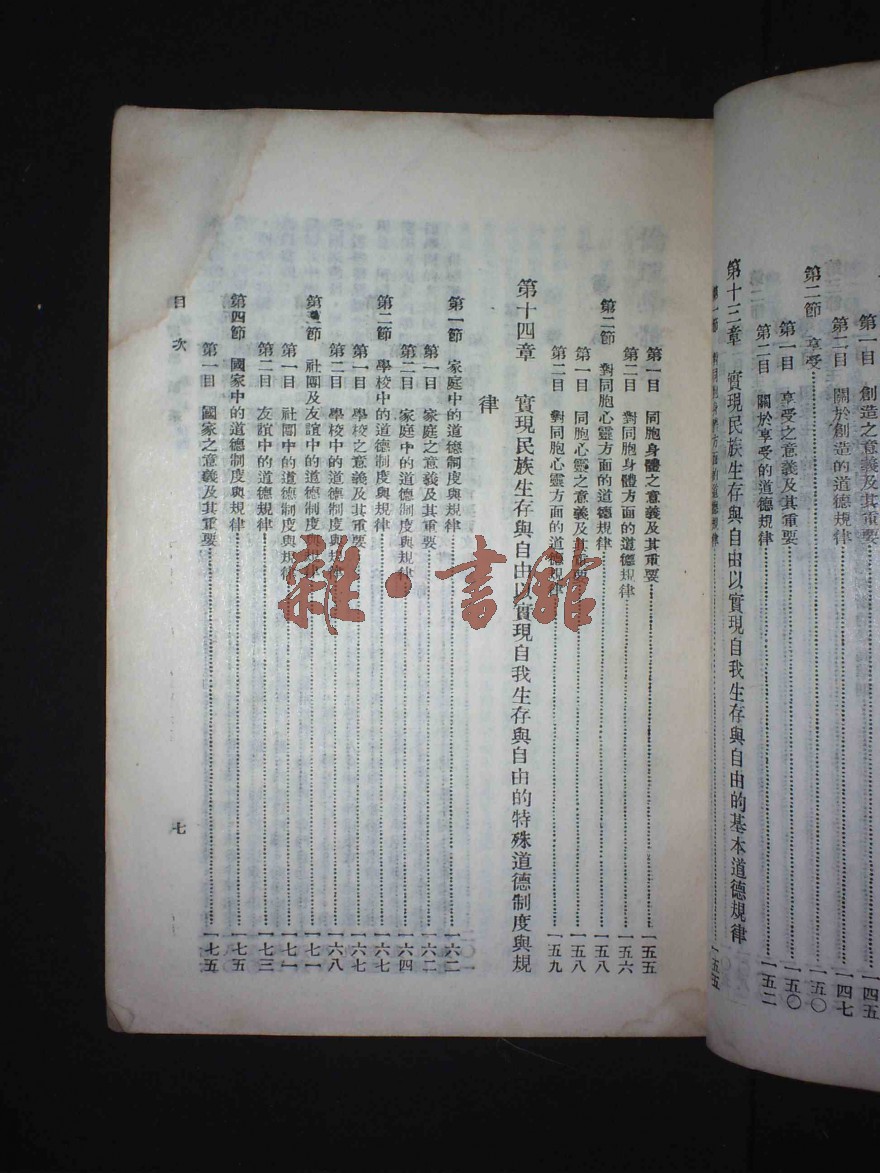 第一目　創造之意義及其重要⋯⋯一四五
第二目　關於創造的道德規律⋯⋯一四七
第二節　享受⋯⋯一五〇
第一目　享受之意義及其重要⋯⋯一五〇
第二目　關於享受的道德規律⋯⋯一五二
第十三章　實現民族生存與自由以實現自我生存與自由的基本道德規律
第一節　對同胞身體方面的道德規律⋯⋯一五五
第一目　同胞身體之意義及其重要⋯⋯一五五
第二目　對同胞身體方面的道德規律⋯⋯一五六
第二節　對同胞心靈方面的道德規律⋯⋯一五八
第一目　同胞心靈之意義及其重要⋯⋯一五八
第二目　對同胞心靈方面的道德規律⋯⋯一五九
第十四章　實現民族生存與自由以實現自我生存與自由的特殊道德制度與規
律
第一節　家庭中的道德制度與規律⋯⋯一六二
第一目　家庭之意義及其重要⋯⋯一六二
第二目　家庭中的道德制度與規律⋯⋯一六四
第二節　學校中的道德制度與規律⋯⋯一六七
第一目　學校之意義及其重要⋯⋯一六七
第二目　學校中的道德制度與規律⋯⋯一六八
第三節　社團及友誼中的道德制度與規律⋯⋯一七一
第一目　社團中的道德制度與規律⋯⋯一七一
第二目　友誼中的道德制度與規律⋯⋯一七三
第四節　國家中的道德制度與規律⋯⋯一七五
第一目　國家之意義及其重要⋯⋯一七五
目次　七
雜·書館